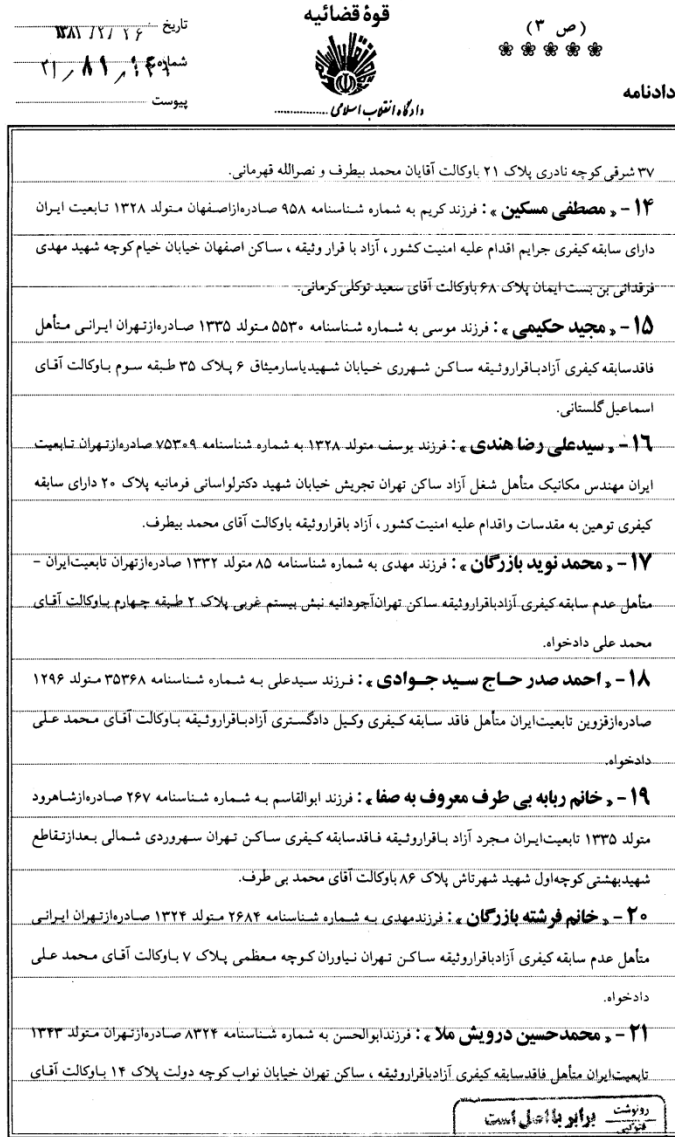 (ص ۳)
دادنامه
قوهٔ قضائیه
دادگاه انقلاب اسلامی
تاریخ ۱۳۸۱/۲/۲۶
شماره
پیوست
۳۷ شرقی کوچه نادری پلاک ۲۱ باوکالت آقایان محمد بیطرف و نصرالله قهرمانی.
۱۴ - « مصطفی مسکین » : فرزند کریم به شماره شناسنامه ۹۵۸ صادرهازاصفهان متولد ۱۳۲۸ تابعیت ایران
دارای سابقه کیفری جرایم اقدام علیه امنیت کشور ، آزاد با قرار وثیقه ، ساکن اصفهان خیابان خیام کوچه شهید مهدی
فرقدانی بن بست ایمان پلاک ۶۸ باوکالت آقای سعید توکلی کرمانی.
۱۵ - « مجید حکیمی » : فرزند موسی به شماره شناسنامه ۵۵۳۰ متولد ۱۳۳۵ صادرهازتهران ایرانی متأهل
فاقدسابقه کیفری آزادباقراروثیقه ساکن شهرری خیابان شهیدیاسارمیثاق ۶ پلاک ۳۵ طبقه سوم باوکالت آقای
اسماعیل گلستانی.
۱۶ - « سیدعلی رضا هندی » : فرزند یوسف متولد ۱۳۲۸ به شماره شناسنامه ۷۵۳۰۹ صادرهازتهران تابعیت
ایران مهندس مکانیک متأهل شغل آزاد ساکن تهران تجریش خیابان شهید دکترلواسانی فرمانیه پلاک ۲۰ دارای سابقه
کیفری توهین به مقدسات واقدام علیه امنیت کشور ، آزاد باقراروثیقه باوکالت آقای محمد بیطرف.
۱۷ - « محمد نوید بازرگان » : فرزند مهدی به شماره شناسنامه ۸۵ متولد ۱۳۳۲ صادرهازتهران تابعیتایران -
متأهل عدم سابقه کیفری آزادباقراروثیقه ساکن تهرانآجودانیه نبش بیستم غربی پلاک ۲ طبقه چهارم باوکالت آقای
محمد علی دادخواه.
۱۸ - « احمد صدر حاج سید جوادی » : فرزند سیدعلی به شماره شناسنامه ۳۵۳۶۸ متولد ۱۲۹۶
صادرهازقزوین تابعیتایران متأهل فاقد سابقه کیفری وکیل دادگستری آزادباقراروثیقه باوکالت آقای محمد علی
دادخواه.
۱۹ - « خانم ربابه بی طرف معروف به صفا » : فرزند ابوالقاسم به شماره شناسنامه ۲۶۷ صادرهازشاهرود
متولد ۱۳۳۵ تابعیتایران مجرد آزاد باقراروثیقه فاقدسابقه کیفری ساکن تهران سهروردی شمالی بعدازتقاطع
شهیدبهشتی کوچهاول شهید شهرتاش پلاک ۸۶ باوکالت آقای محمد بی طرف.
۲۰ - « خانم فرشته بازرگان » : فرزندمهدی به شماره شناسنامه ۲۶۸۴ متولد ۱۳۲۴ صادرهازتهران ایرانی
متأهل عدم سابقه کیفری آزادباقراروثیقه ساکن تهران نیاوران کوچه معظمی پلاک ۷ باوکالت آقای محمد علی
دادخواه.
۲۱ - « محمدحسین درویش ملا » : فرزندابوالحسن به شماره شناسنامه ۸۳۲۴ صادرهازتهران متولد ۱۳۴۳
تابعیتایران متأهل فاقدسابقه کیفری آزادباقراروثیقه ، ساکن تهران خیابان نواب کوچه دولت پلاک ۱۴ باوکالت آقای
رونوشت
فتوکپی
برابر با اصل است